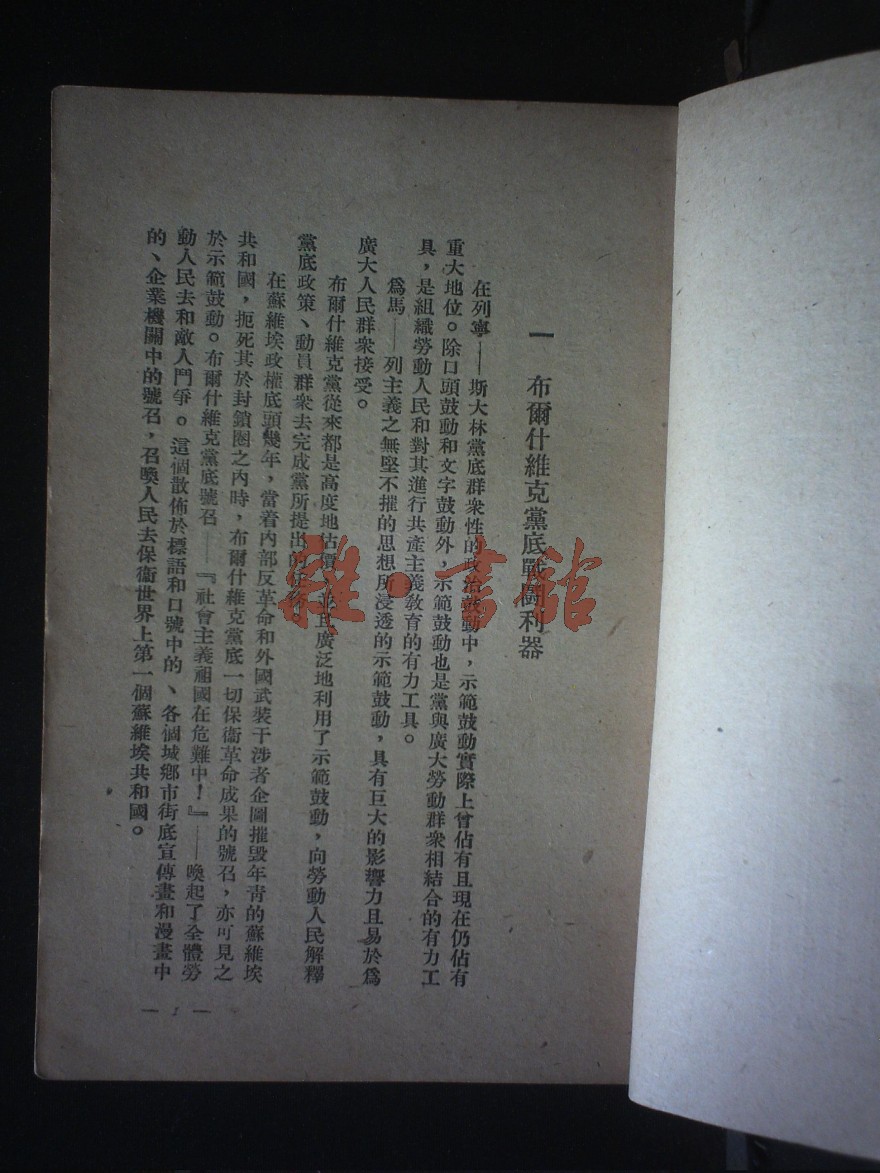 一 布爾什維克黨底戰鬪利器
在列寧——斯大林黨底群衆性的政治鼓動中，示範鼓動實際上曾佔有且現在仍佔有
重大地位。除口頭鼓動和文字鼓動外，示範鼓動也是黨與廣大勞動群衆相結合的有力工
具，是組織勞動人民和對其進行共產主義教育的有力工具。
爲馬——列主義之無堅不摧的思想所浸透的示範鼓動，具有巨大的影響力且易於爲
廣大人民群衆接受。
布爾什維克黨從來都是高度地估價，並且廣泛地利用了示範鼓動，向勞動人民解釋
黨底政策、動員群衆去完成黨所提出的任務。
在蘇維埃政權底頭幾年，當着內部反革命和外國武裝干涉者企圖摧毀年靑的蘇維埃
共和國，扼死其於封鎖圈之內時，布爾什維克黨底一切保衞革命成果的號召，亦可見之
於示範鼓動。布爾什維克黨底號召——『社會主義祖國在危難中！』——喚起了全體勞
動人民去和敵人鬥爭。這個散佈於標語和口號中的、各個城鄉市街底宣傳畫和漫畫中
的、企業機關中的號召，召喚人民去保衞世界上第一個蘇維埃共和國。
— 1 —
雜·書舘